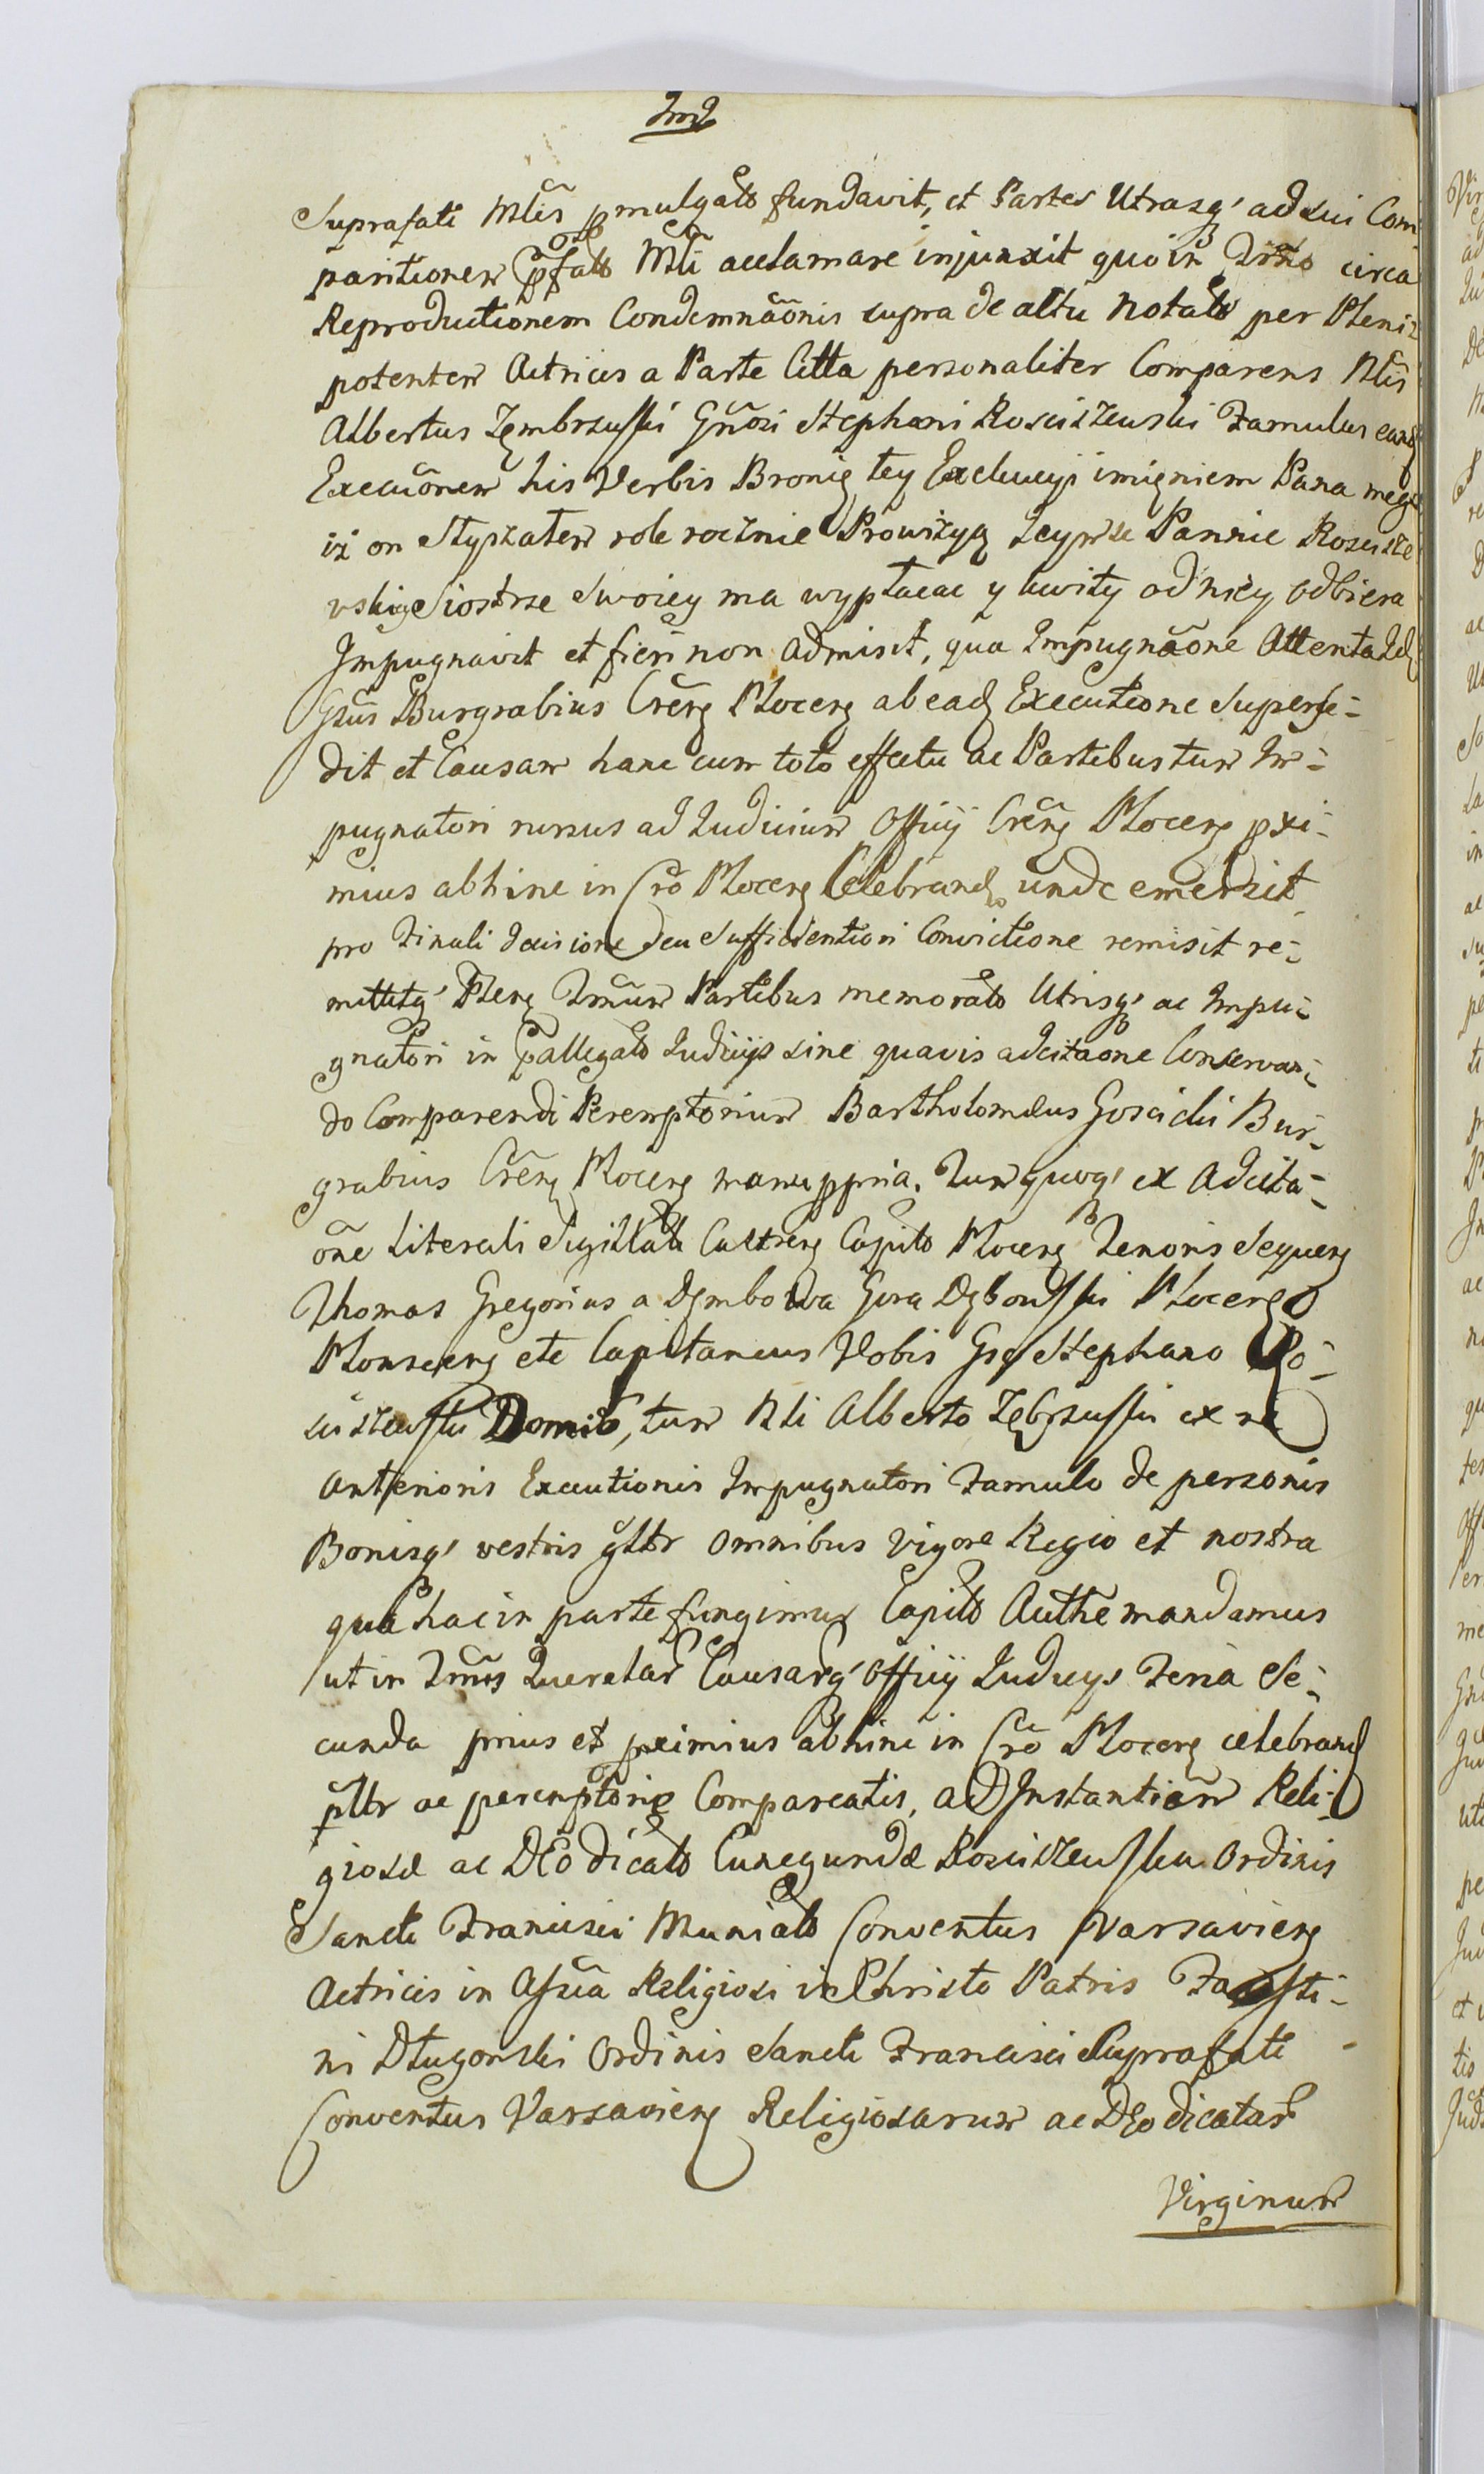 Suprafati Mlis pmulgato fundavit, et Partes Utrasq' ad sui Com-
paritionem pfato Mli acclamare injunxit quo in Trno circa
Reproductionem Condemnãonis supra de actu notato per Pleni-
potentem Actricis a Parte Citta personaliter Comparens Nlis
Albertus Zembrzuski Gnosi Stephani Rosciszewski Famulus eand
Execuõnem his Verbis Bronię tey Exekucyi imięniem Pana mego
iż on Stypzatem role rocznie Prowizyą Jeymsc Pannie Roscisze
wskiey Siostrze Swoiey ma wypłacac y kwity od niey odbiera
Impugnavit et fieri non admisit, qua Impugnãone Attenta Id
Gsus Burgrabius Creñ Plocen ab ead Executione Superse-
dit et Causam hanc cum toto effectu ac Partibus tum Im-
pugnatori rursus ad Judicium Officij Creñ Plocen pxi-
mius abhinc in Cro Plocen Celebrand unde emersit
pro Finali decisione seu Sufficientiori Convictione remisit re-
mittitq' Plen Trnum Partibus memorato Utrisq' ac Impu-
gnatori in pallegato Judicijs sine quavis adcitaone Conservan-
do Comparendi Peremptorium Bartholomeus Goscicki Bur-
grabius Creñ Plocen manu ppria. Tum quoq' ex Adcita-
õne Literali Sigillata Castren Capito Plocen Tenoris Sequen
Thomas Gregorius a Dembowa Gora Dębowski Plocen
Plonscen etc Capitaneus Vobis Gso Stephano Ro-
sciszewski Domino, tum Nli Alberto Zębrzuski ex re
anterioris Executionis Impugnatori Famulo de personis
Bonisq' vestris gltr omnibus vigore Regio et nostra
qua hac in parte fungimur Capito Authe mandamus
ut in Trnis Querelar Causarq' Officij Judicys Feria Se-
cunda prius et pximius abhinc in Cro Plocen celebrand
pltr ac peremptorie Compareatis, ad Instantiam Reli-
giosæ ac DEo dicato Cunegundæ Rosciszewska Ordinis
Sancti Francisci Monialo Conventus Varsavien
Actricis in Assña Religiosi in Christo Patris Fausti-
ni Długonski Ordinis Sancti Francisci Suprafati
Conventus Varsavien Religiosarum ac DEo dicatar
Virginum